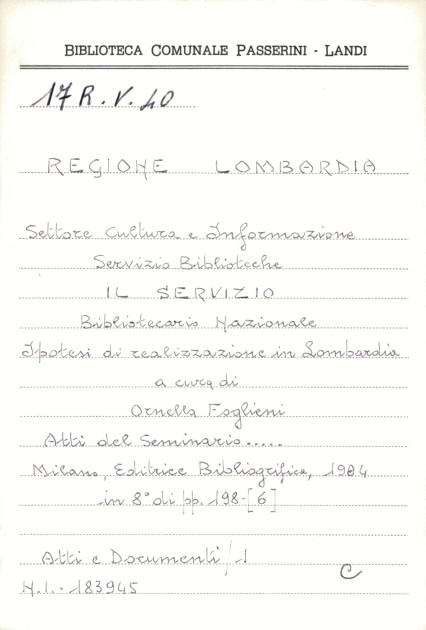 BIBLIOTECA COMUNALE PASSERINI - LANDI
17 R. V. 40
REGIONE LOMBARDIA
Settore Cultura e Informazione
Servizio Biblioteche
IL SERVIZIO
Bibliotecario Nazionale
Ipotesi di realizzazione in Lombardia
a cura di
Ornella Foglieni
Atti del Seminario.....
Milano, Editrice Bibliografica, 1984
in 8° di pp. 198-[6]
Atti e Documenti / 1
N.I. - 183945
C